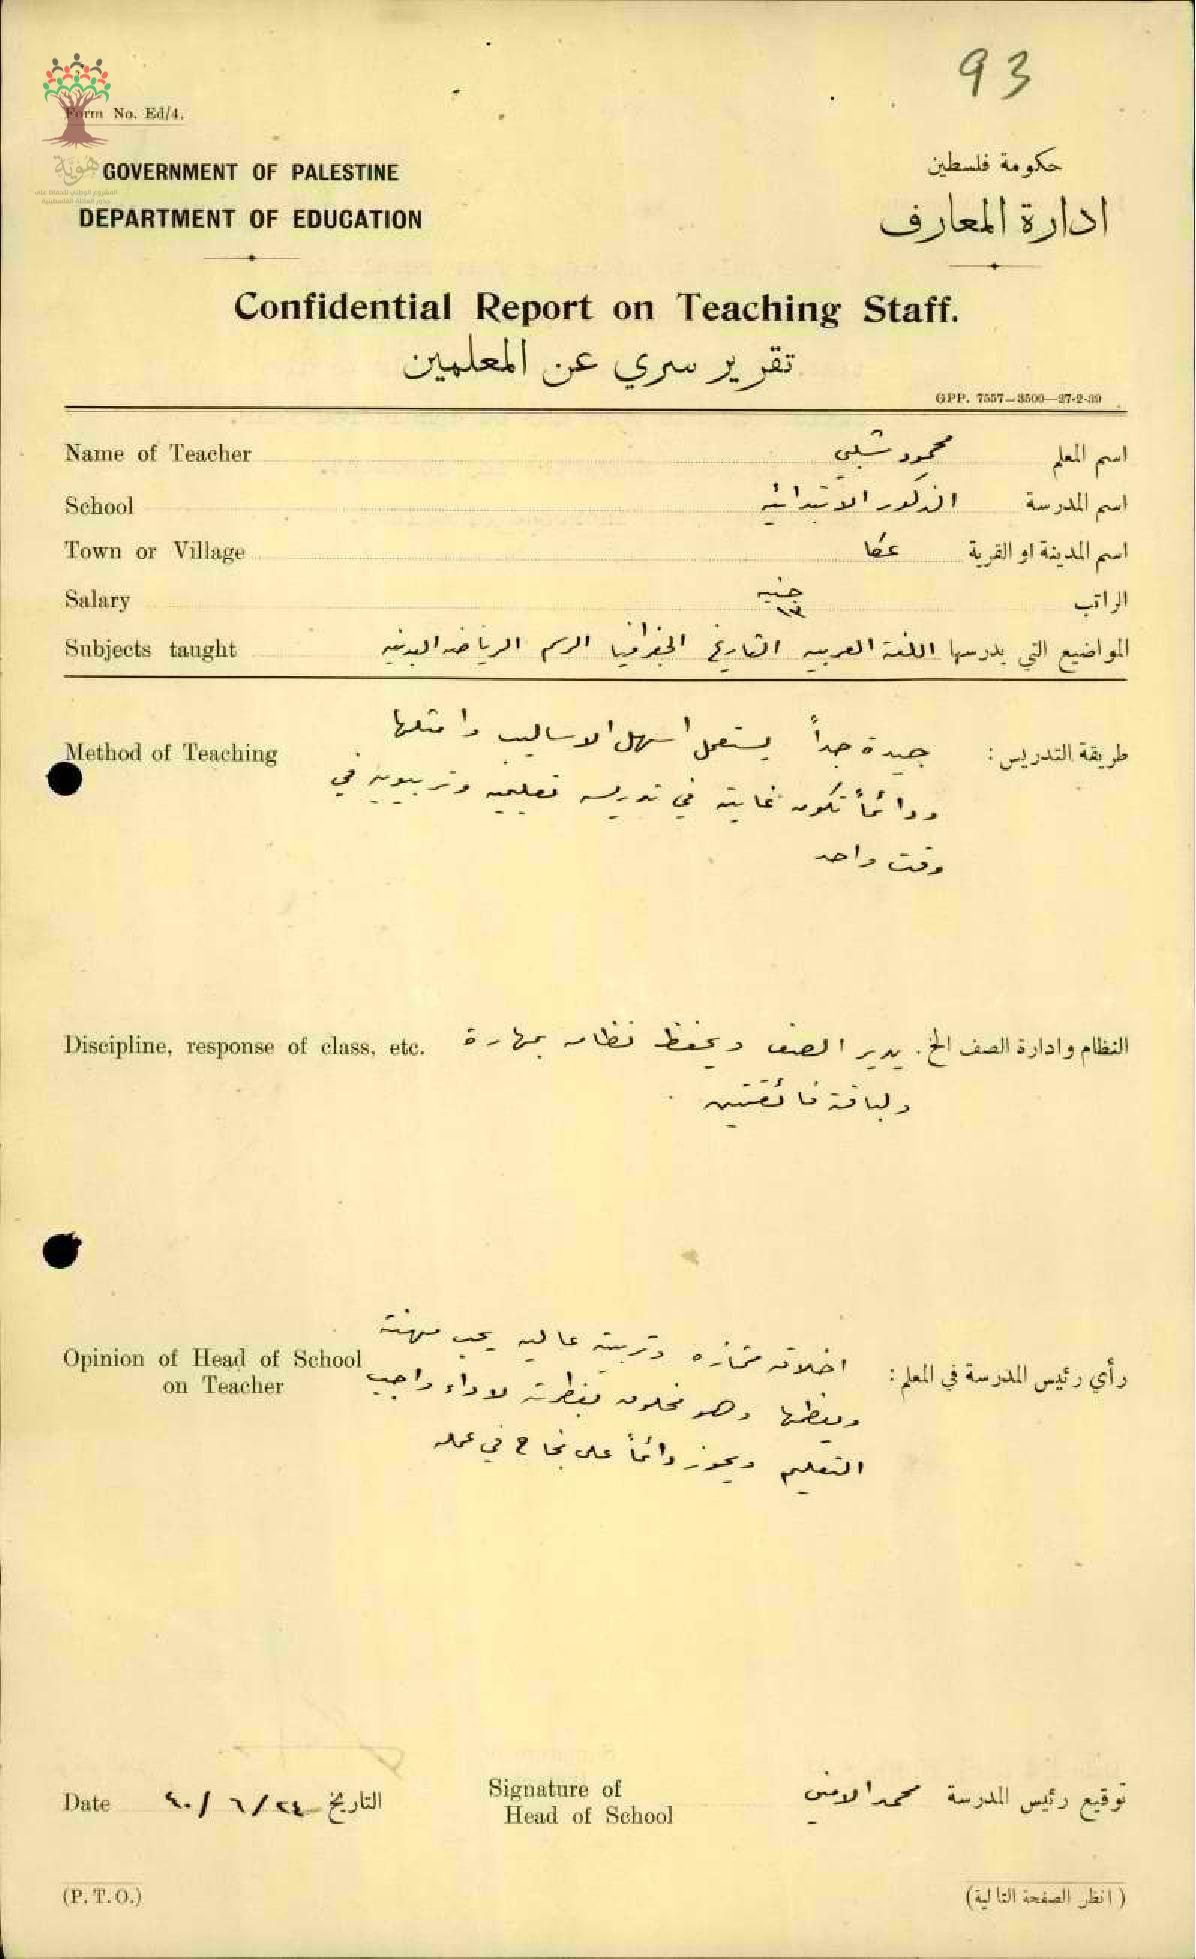 93
Form No. Ed/4.
هوية
GOVERNMENT OF PALESTINE
حكومة فلسطين
DEPARTMENT OF EDUCATION
ادارة المعارف
Confidential Report on Teaching Staff.
تقرير سري عن المعلمين
GPP. 7557—3500—27-2-39
Name of Teacher محمود شبلي اسم المعلم
School الذكور الابتدائية اسم المدرسة
Town or Village عكا اسم المدينة او القرية
Salary جنيه ١٣ الراتب
Subjects taught المواضيع التي يدرسها اللغة العربيه التاريخ الجغرافيا الرسم الرياضه البدنيه
Method of Teaching طريقة التدريس : جيدة جداً يستعمل اسهل الاساليب وامثلها
ودائماً تكون غايته في تدريسه تعليميه وتربيويه في
وقت واحد
Discipline, response of class, etc. النظام وادارة الصف الخ . يدير الصف ويحفظ نظامه بمهارة
ولباقة فائقتين .
Opinion of Head of School
on Teacher
رأي رئيس المدرسة في المعلم : اخلاقه ممتازه وتربيته عاليه يحب مهنته
ويعظمها وهو مخلوق بفطرته لاداء واجب
التعليم ويحوز دائماً على نجاح في عمله
Date ٢٤ / ٦ / ٤٠ التاريخ
Signature of
Head of School
توقيع رئيس المدرسة محمد الامين
(P. T. O.)
( انظر الصفحة التالية )